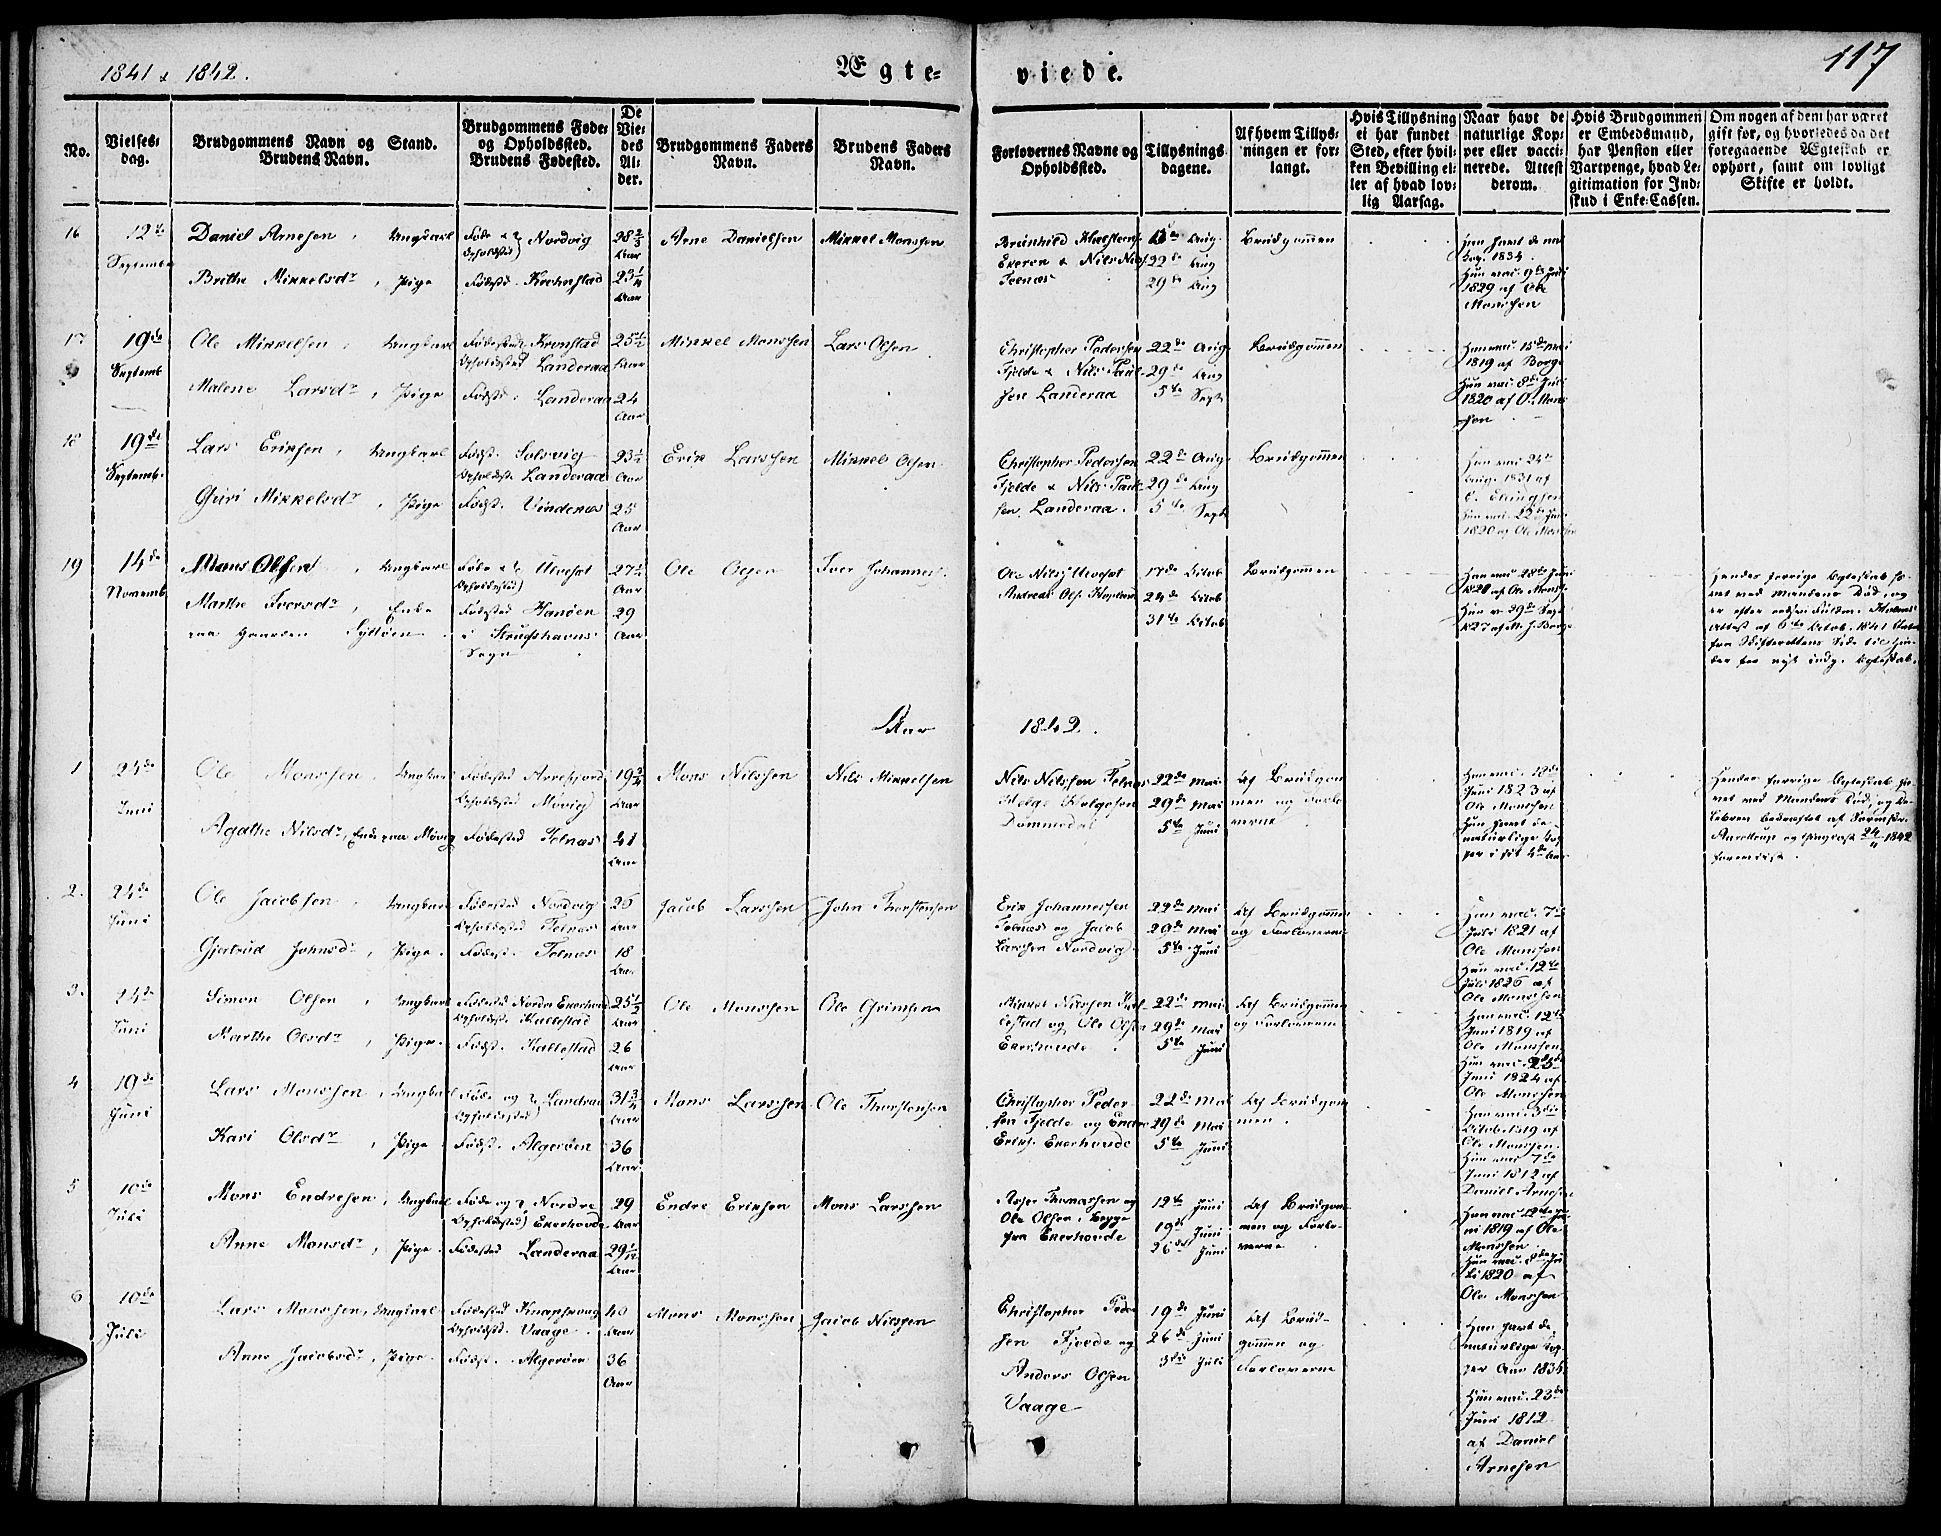 1841 & 1842.
Ægte-
viede.
117
No.
Vielses-
dag.
Brudgommens Navn og Stand.
Brudens Navn.
Brudgommens Føde-
og Opholdssted.
Brudens Fødested.
De
Vie-
des
Al-
der.
Brudgommens Faders
Navn.
Brudens Faders
Navn.
Forlovernes Navne og
Opholdssted.
Tillysnings-
dagene.
Af hvem Tillys-
ningen er for-
langt.
Hvis Tillysning
ei har fundet
Sted, efter hvil-
ken Bevilling el-
ler af hvad lov-
lig Aarsag.
Naar havt de
naturlige Kop-
per eller vacci-
nerede. Attest
derom.
Hvis Brudgommen
er Embedsmand,
har Pension eller
Vartpenge, hvad Le-
gitimation for Ind-
skud i Enke-Cassen.
Om nogen af dem har været
gift før, og hvorledes da det
foregaaende Ægteskab er
ophørt, samt om lovligt
Skifte er holdt.
16
12te
September
Daniel Arnesen, Ungkarl
Brithe Mikkelsdr, Pige
Føde &
Opholdsted Nordvig
Fødested
28 2/3
Aar
23 1/4
Aar
Arne Danielsen
Mikkel Monsen
Nils Nils.
Aug.
22de Aug
29de Aug
Brudgommen
Han havt de na
Kop. 1834.
Hun vac. 9de Juli
1829 af Ole
Monssen
17
19de
Septemb
Ole Mikkelsen, Ungkarl
Malene Larsdr, Pige
Fødested Kronstad
Opholdsted Landeraa
Fødsted. Landeraa
25 1/2
Aar
24
Aar
Mikkel Monssen
Lars Olsen
Christopher Pedersen
Fjelde & Nils Paul-
sen Landeraa
22de Aug
29de Aug
5te Sept
Brudgommen
Han vac. 15de Mai
1819 af Borge
Hun vac. 8de Juli
1820 af O. Mons
sen
18
19de
Septemb.
Lars Eriksen, Ungkarl
Guri Mikkelsdr, Pige
Fødst. Solsvig
Opholdst. Landeraa
Fødst. Vindenes
23 1/2
Aar
25
Aar
Erik Larssen
Mikkel Olsen
Christopher Pedersen
Fjelde & Nils Paul-
sen, Landeraa.
22de Aug
29de Aug
5te Sept
Brudgommen
Han vac. 24de
Aug. 1831 af
Hun vac. 22de Juni
1820 af Ole Monssen
19
14de
Novemb
Mons Olsen, Ungkarl
Marthe Iversdr, Enke
paa Gaarden Syltøen
Føde &
Opholdsted Ulveset
Fødested Hanøen
i Strudshavns
Sogn
27 1/2
Aar
29
Aar
Ole Olsen
Iver Johannes.
Ole Nils. Ulveset
Andreas Ols.
17de Octob
24de Octob
31te Octob
Brudgommen
Han vac. 28de Juni
af Ole Monss.
Hun v. 29de Sept
1827 af
Hendes forrige Egteskab hæ-
vet ved Mandens Død, og
er efter
Attest af 6te Octob. 1841
fra Skifterettens Side til Hin-
der for nyt indg. Egteskab.
Aar
1842.
1
24de
Juni
Ole Monssen, Ungkarl
Agathe Nilsdr, Enke paa Møvig
Fødested Arrefjord
Opholdsted Møvig
Fødested Telnæs
19 3/4
Aar
41
Aar
Mons Nilssen
Nils Mikkelsen
Nils Nilssen Telnæs
Helge Helgesen
Dommedal
22de Mai
29de Mai
5te Juni
Af Brudgom
men og Forlo
verne
Han vac. 18de
Juni 1823 af
Ole Monssen
Hun havt de
naturlige Kop
per i sit 4de Aar
Hendes forrige Egteskab hæ-
vet ved Mandens Død, og
24/4 1842
2.
24de
Juni
Ole Jacobsen, Ungkarl
Gjertrud Johnsdr, Pige
Fødested Nordvig
Opholdsted Telnæs
Fødest. Telnæs
26
Aar
18
Aar
Jacob Larssen
John Thorstensen
Erik Johannessen
Telnæs og Jacob
Larssen Nordvig
22de Mai
29de Mai
5te Juni
Af Brudgommen
og Forloverne
Han vac. 7de
Juli 1821 af
Ole Monssen
Hun vac. 12te
Juli 1826 af
Ole Monssen
3.
24de
Juni
Simon Olsen, Ungkarl
Marthe Olsdr, Pige
Fødested Nordre Ekerhovde
Opholdst. Kallestad
Fødst. Kallestad
25 1/2
Aar
26
Aar
Ole Monssen
Ole Grimsen
Mikkel Nilssen Kal-
lestad og Ole Olsen
Ekerhovde
22de Mai
29de Mai
5te Juni
Af Brudgommen
og Forloverne
Han vac. 12te
Juni 1819 af
Ole Monssen
Hun vac. 23de
Juni 1824 af
Ole Monssen
4
19de
Juni
Lars Monssen, Ungkarl
Kari Olsdr, Pige
Føde og
Opholdsted Landraa
Fødst. Algerøen
31 3/4
Aar
36
Aar
Mons Larssen
Ole Thorstensen
Christopher Peder
sen Fjelde og Endre
Eriks. Ekerhovde
22de Mai
29de Mai
5te Juni
Af Brudgom
men.
Han vac. 3die
Octob. 1819 af
Ole Monssen.
Hun vac. 7de
Juni 1812 af
Daniel Arnesen
5
10de
Juli
Mons Endresen, Ungkarl
Anne Monsdr, Pige
Føde og Nordre
Opholdsted Ekerhovde
Fødested Landeraa
29
Aar
29 1/12
Aar
Endre Eriksen
Mons Larssen
Asser Thomassen og
Ole Olsen, begge
fra Ekerhovde
12te Juni
19de Juni
26de Juni
Af Brudgom-
men og Forlo-
verne
Han vac. 12te Ju
ni 1819 af Ole
Monssen
Hun vac. 8de Ju
li 1820 af
Ole Monssen
6
10de
Juli
Lars Monssen, Ungkarl
Anne Jacobsdr, Pige
Fødested Knapskoug
Opholdst. Vaage
Fødst. Algerøen
40
Aar
36
Aar
Mons Monssen
Jacob Nilssen
Christopher Peder
sen Fjelde og
Anders Olsen
Vaage
19de Juni
26de Juni
3die Juli
Af Brud-
gommen og
Forloverne
Han havt de
naturlige Kop
per Aar 1834
Hun vac. 23de
Juni 1812
af Daniel
Arnesen